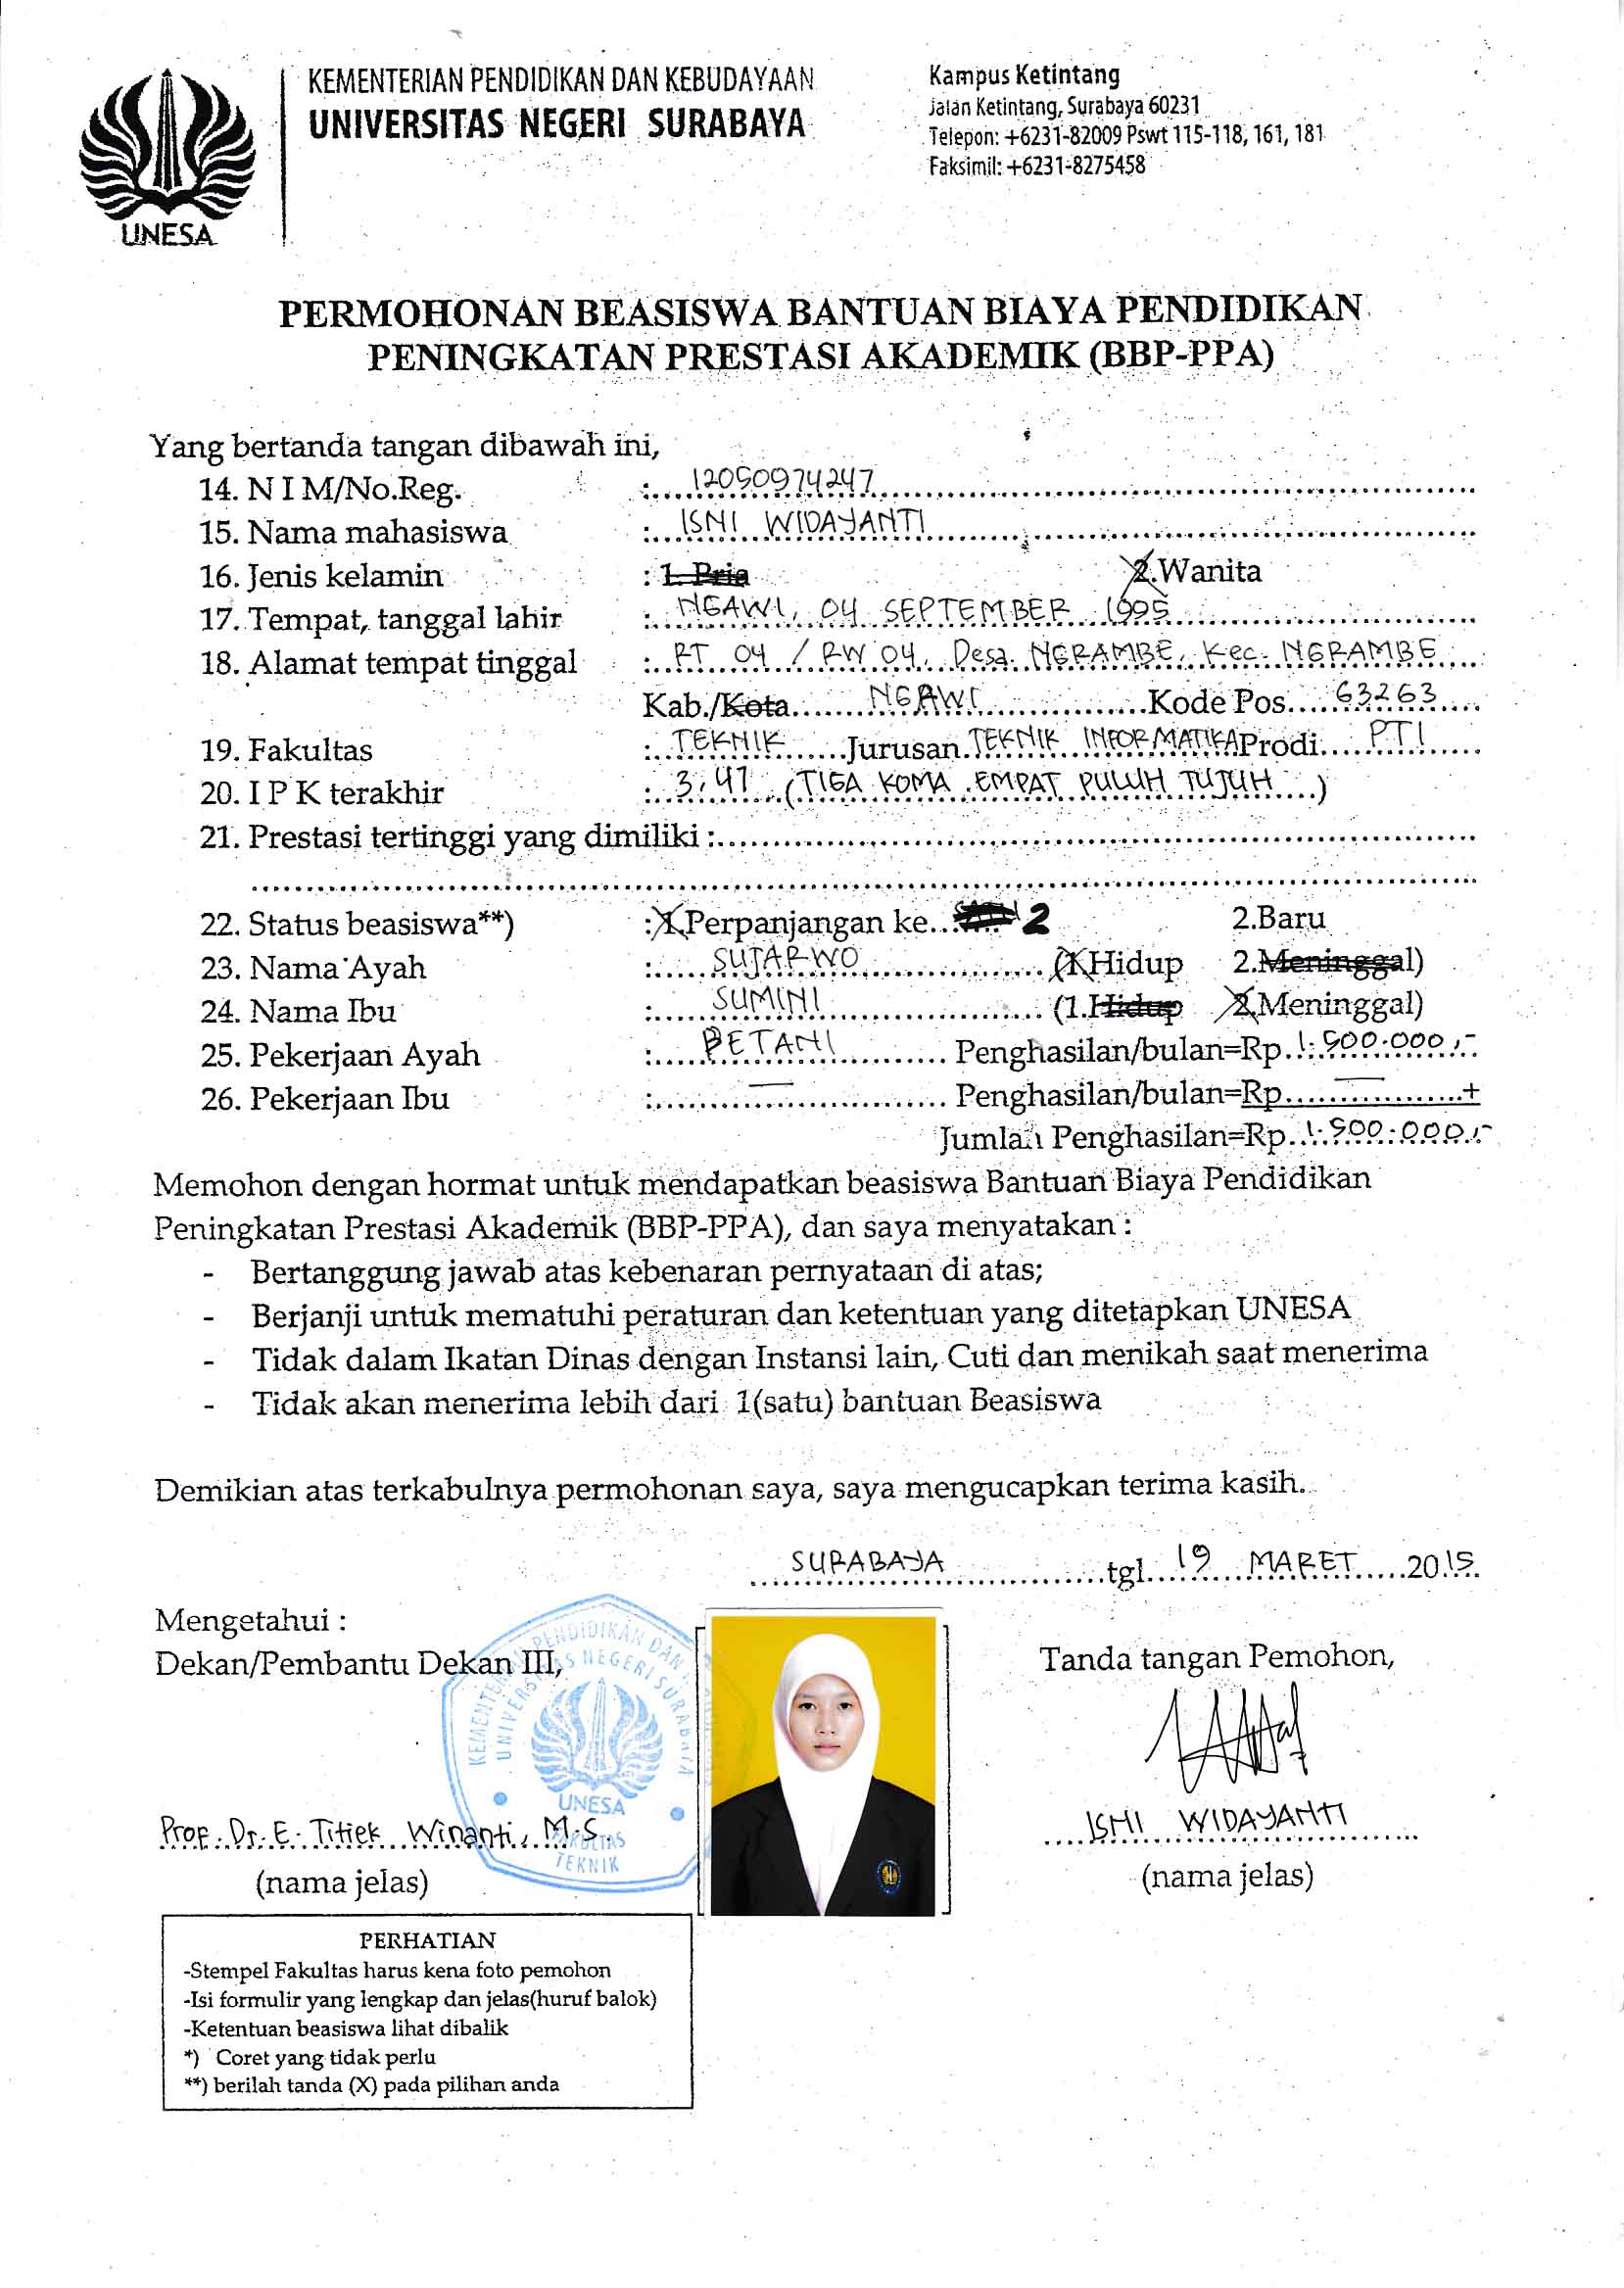 KEMENTERIAN PENDIDIKAN DAN KEBUDAYAAN
UNIVERSITAS NEGERI SURABAYA
UNESA
Kampus Ketintang
Jalan Ketintang, Surabaya 60231
Telepon: +6231-82009 Pswt 115-118, 161, 181
Faksimil: +6231-8275458
PERMOHONAN BEASISWA BANTUAN BIAYA PENDIDIKAN
PENINGKATAN PRESTASI AKADEMIK (BBP-PPA)
Yang bertanda tangan dibawah ini,
14. N I M/No.Reg. : 12050974247
15. Nama mahasiswa : ISNI WIDAYANTI
16. Jenis kelamin : 1. Pria 2.Wanita
17. Tempat, tanggal lahir : NGAWI, 04 SEPTEMBER 1995
18. Alamat tempat tinggal : RT 04 / RW 04, Desa. NGRAMBE, Kec. NGRAMBE
Kab./Kota NGAWI Kode Pos 63263
19. Fakultas : TEKNIK Jurusan TEKNIK INFORMATIKA Prodi PTI
20. I P K terakhir : 3,47 (TIGA KOMA EMPAT PULUH TUJUH)
21. Prestasi tertinggi yang dimiliki :
22. Status beasiswa**) : 1.Perpanjangan ke 2 2.Baru
23. Nama Ayah : SUJARWO (1.Hidup 2.Meninggal)
24. Nama Ibu : SUMINI (1.Hidup 2.Meninggal)
25. Pekerjaan Ayah : PETANI Penghasilan/bulan=Rp 1.500.000,-
26. Pekerjaan Ibu : — Penghasilan/bulan=Rp — +
Jumlah Penghasilan=Rp 1.500.000,-
Memohon dengan hormat untuk mendapatkan beasiswa Bantuan Biaya Pendidikan
Peningkatan Prestasi Akademik (BBP-PPA), dan saya menyatakan :
- Bertanggung jawab atas kebenaran pernyataan di atas;
- Berjanji untuk mematuhi peraturan dan ketentuan yang ditetapkan UNESA
- Tidak dalam Ikatan Dinas dengan Instansi lain, Cuti dan menikah saat menerima
- Tidak akan menerima lebih dari 1(satu) bantuan Beasiswa
Demikian atas terkabulnya permohonan saya, saya mengucapkan terima kasih.
SURABAYA tgl 19 MARET 2015
Mengetahui :
Dekan/Pembantu Dekan III,
Tanda tangan Pemohon,
KEMENTERIAN PENDIDIKAN DAN
UNIVERSITAS NEGERI SURABAYA
UNESA
FAKULTAS
TEKNIK
Prof. Dr. E. Titiek Winanti, M.S.
(nama jelas)
ISNI WIDAYANTI
(nama jelas)
PERHATIAN
-Stempel Fakultas harus kena foto pemohon
-Isi formulir yang lengkap dan jelas(huruf balok)
-Ketentuan beasiswa lihat dibalik
*) Coret yang tidak perlu
**) berilah tanda (X) pada pilihan anda